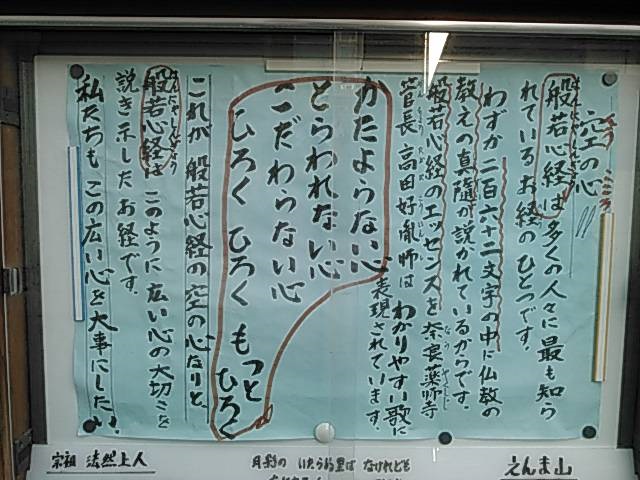 空の心
般若心経は多くの人々に最も知ら
れているお経のひとつです。
わずか二百六十二文字の中に仏教の
教えの真髄が説かれているからです。
般若心経のエッセンスを奈良薬師寺
管長 高田好胤師は わかりやすい歌に
表現されています。
かたよらない心
とらわれない心
こだわらない心
ひろく ひろく もっと ひろく
これが 般若心経の空の心なりと、
般若心経は このように広い心の大切さを
説き示したお経です。
私たちも この広い心を大事にしたい。
宗祖 法然上人
月影の いたらぬ里は なけれども
えんま山